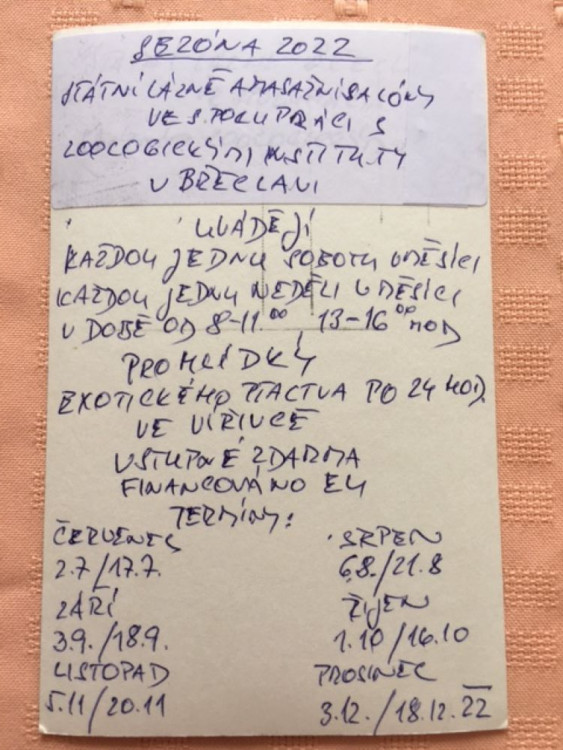 SEZÓNA 2022
STÁTNÍ LÁZNĚ A MASAŽNÍ SALÓNY
VE SPOLUPRÁCI S
ZOOLOGICKÝMI INSTITUTY
V BŘECLAVI
UVÁDĚJÍ
KAŽDOU JEDNU SOBOTU V MĚSÍCI
KAŽDOU JEDNU NEDĚLI V MĚSÍCI
V DOBĚ OD 8-11.00 13-16.00 HOD
PROHLÍDKY
EXOTICKÉHO PTACTVA PO 24 HOD.
VE VÍŘIVCE
VSTUPNÉ ZDARMA
FINANCOVÁNO EU
TERMÍNY:
ČERVENEC SRPEN
2.7/17.7. 6.8./21.8
ZÁŘÍ ŘÍJEN
3.9./18.9. 1.10/16.10
LISTOPAD PROSINEC
5.11/20.11 3.12./18.12.22